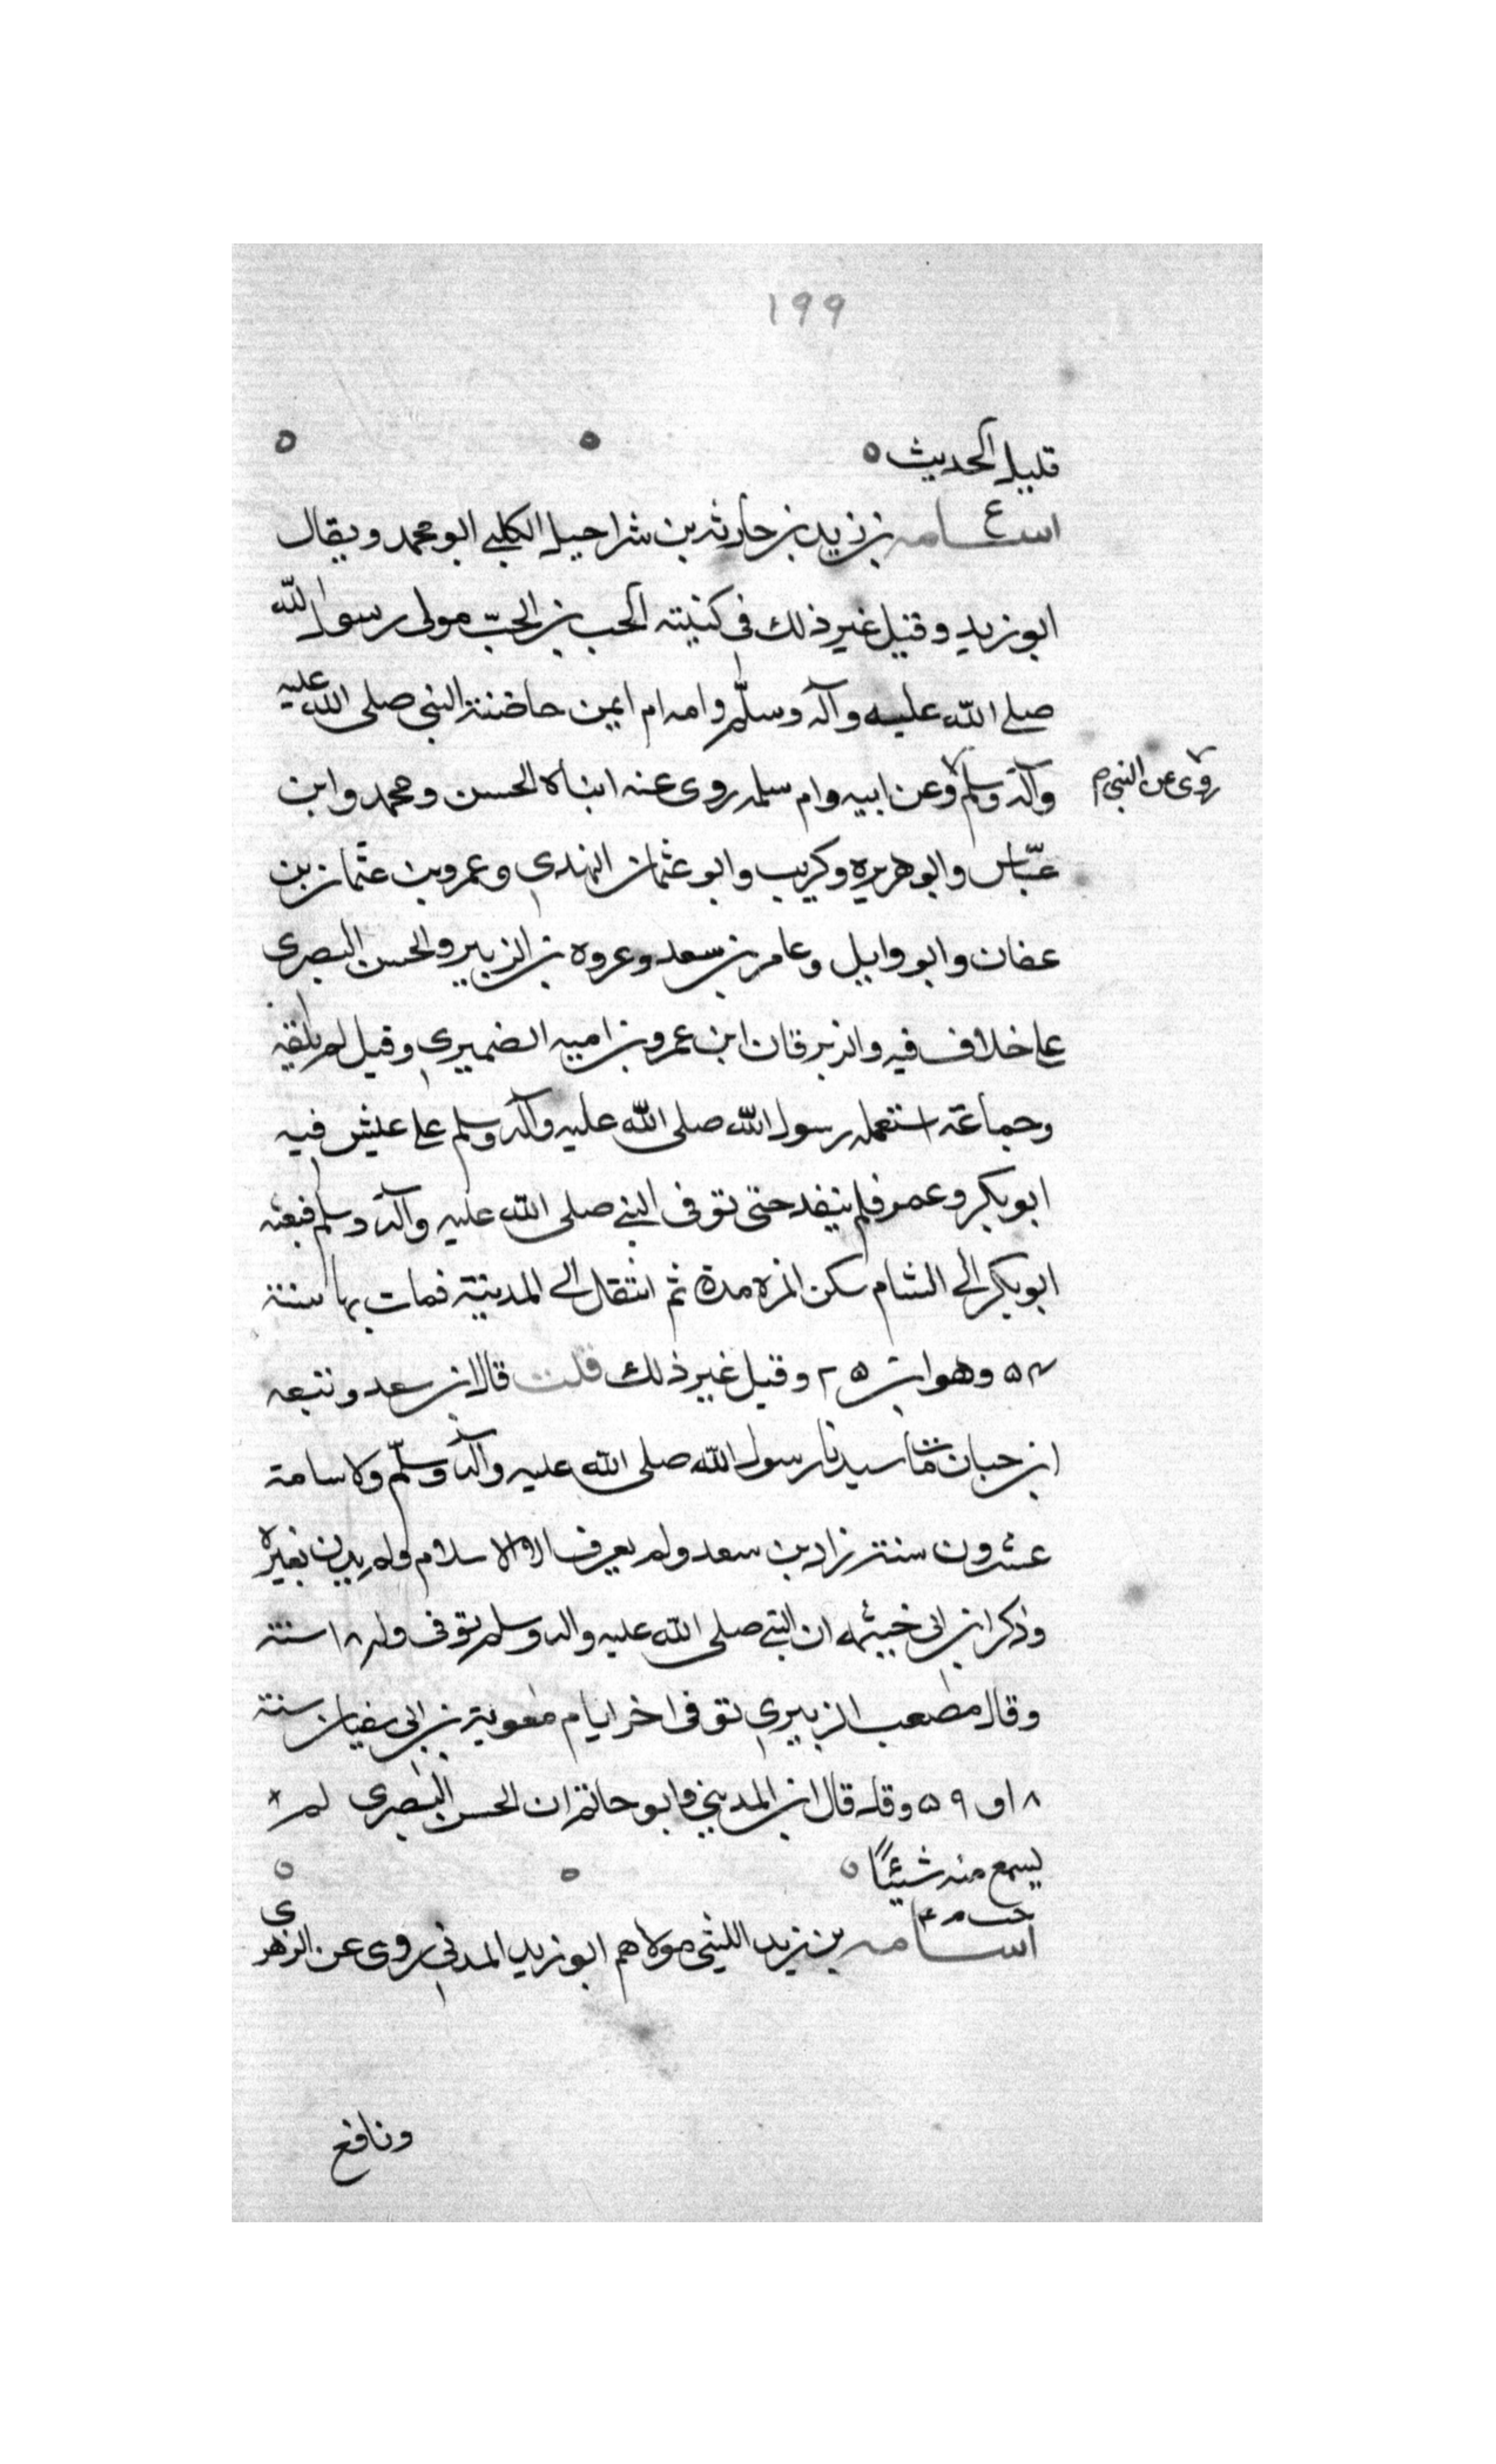 ١٩٩
قليل الحديث ٥ ٥ ٥
ع
اسامه بن زيد بن حارثه بن شراحيل الكلبي ابو محمد ويقال
ابو زيد وقيل غير ذلك في كنيته الحب بن الحبّ مولى رسول الله
صلى الله عليه وآله وسلّم وامه ام ايمن حاضنة النبي صلى الله عليه
وآله وسلم وعن ابيه وام سلمه روى عنه ابناه الحسن ومحمد وابن
روى عن النبي م
عبّاس وابو هريره وكريب وابو عثمان النهدي وعمرو بن عثمان بن
عفان وابو وايل وعامر بن سعد وعروه بن الزبير والحسن البصرى
على خلاف فيه والزبرقان ابن عمرو بن اميه الضميري وقيل لم يلقه
وجماعة استعمله رسول الله صلى الله عليه وآله وسلم على عليش فيه
ابو بكر وعمر فلم ينفد حتى توفى النبي صلى الله عليه وآله وسلم فبعثه
ابو بكر الى الشام سكن المزه مدة ثم انتقل الى المدينة فمات بها سنة
٥٤ وهو ابن ٧٥ وقيل غير ذلك قلت قال ابن سعد وتبعه
ابن حبان مات سيدنا رسول الله صلى الله عليه وآله وسلّم ولاسامة
عشرون سنة زاد بن سعد ولم يعرف الا الاسلام ولم يدين بغيره
وذكر ابن ابى خيثمه ان النبي صلى الله عليه واله وسلم توفى وله ١٨ سنة
وقال مصعب الزبيري توفى اخر ايام معوية بن ابى سفيان سنة
٨ او ٥٩ وقد قال ابن المديني وابو حاتم ان الحسن البصرى لم
يسمع منه شيئًا ٥ ٥ ٥
خت م ٤
اسامه بن زيد الليثى مولاهم ابو زيد المدني روى عن الزهرى
ونافع